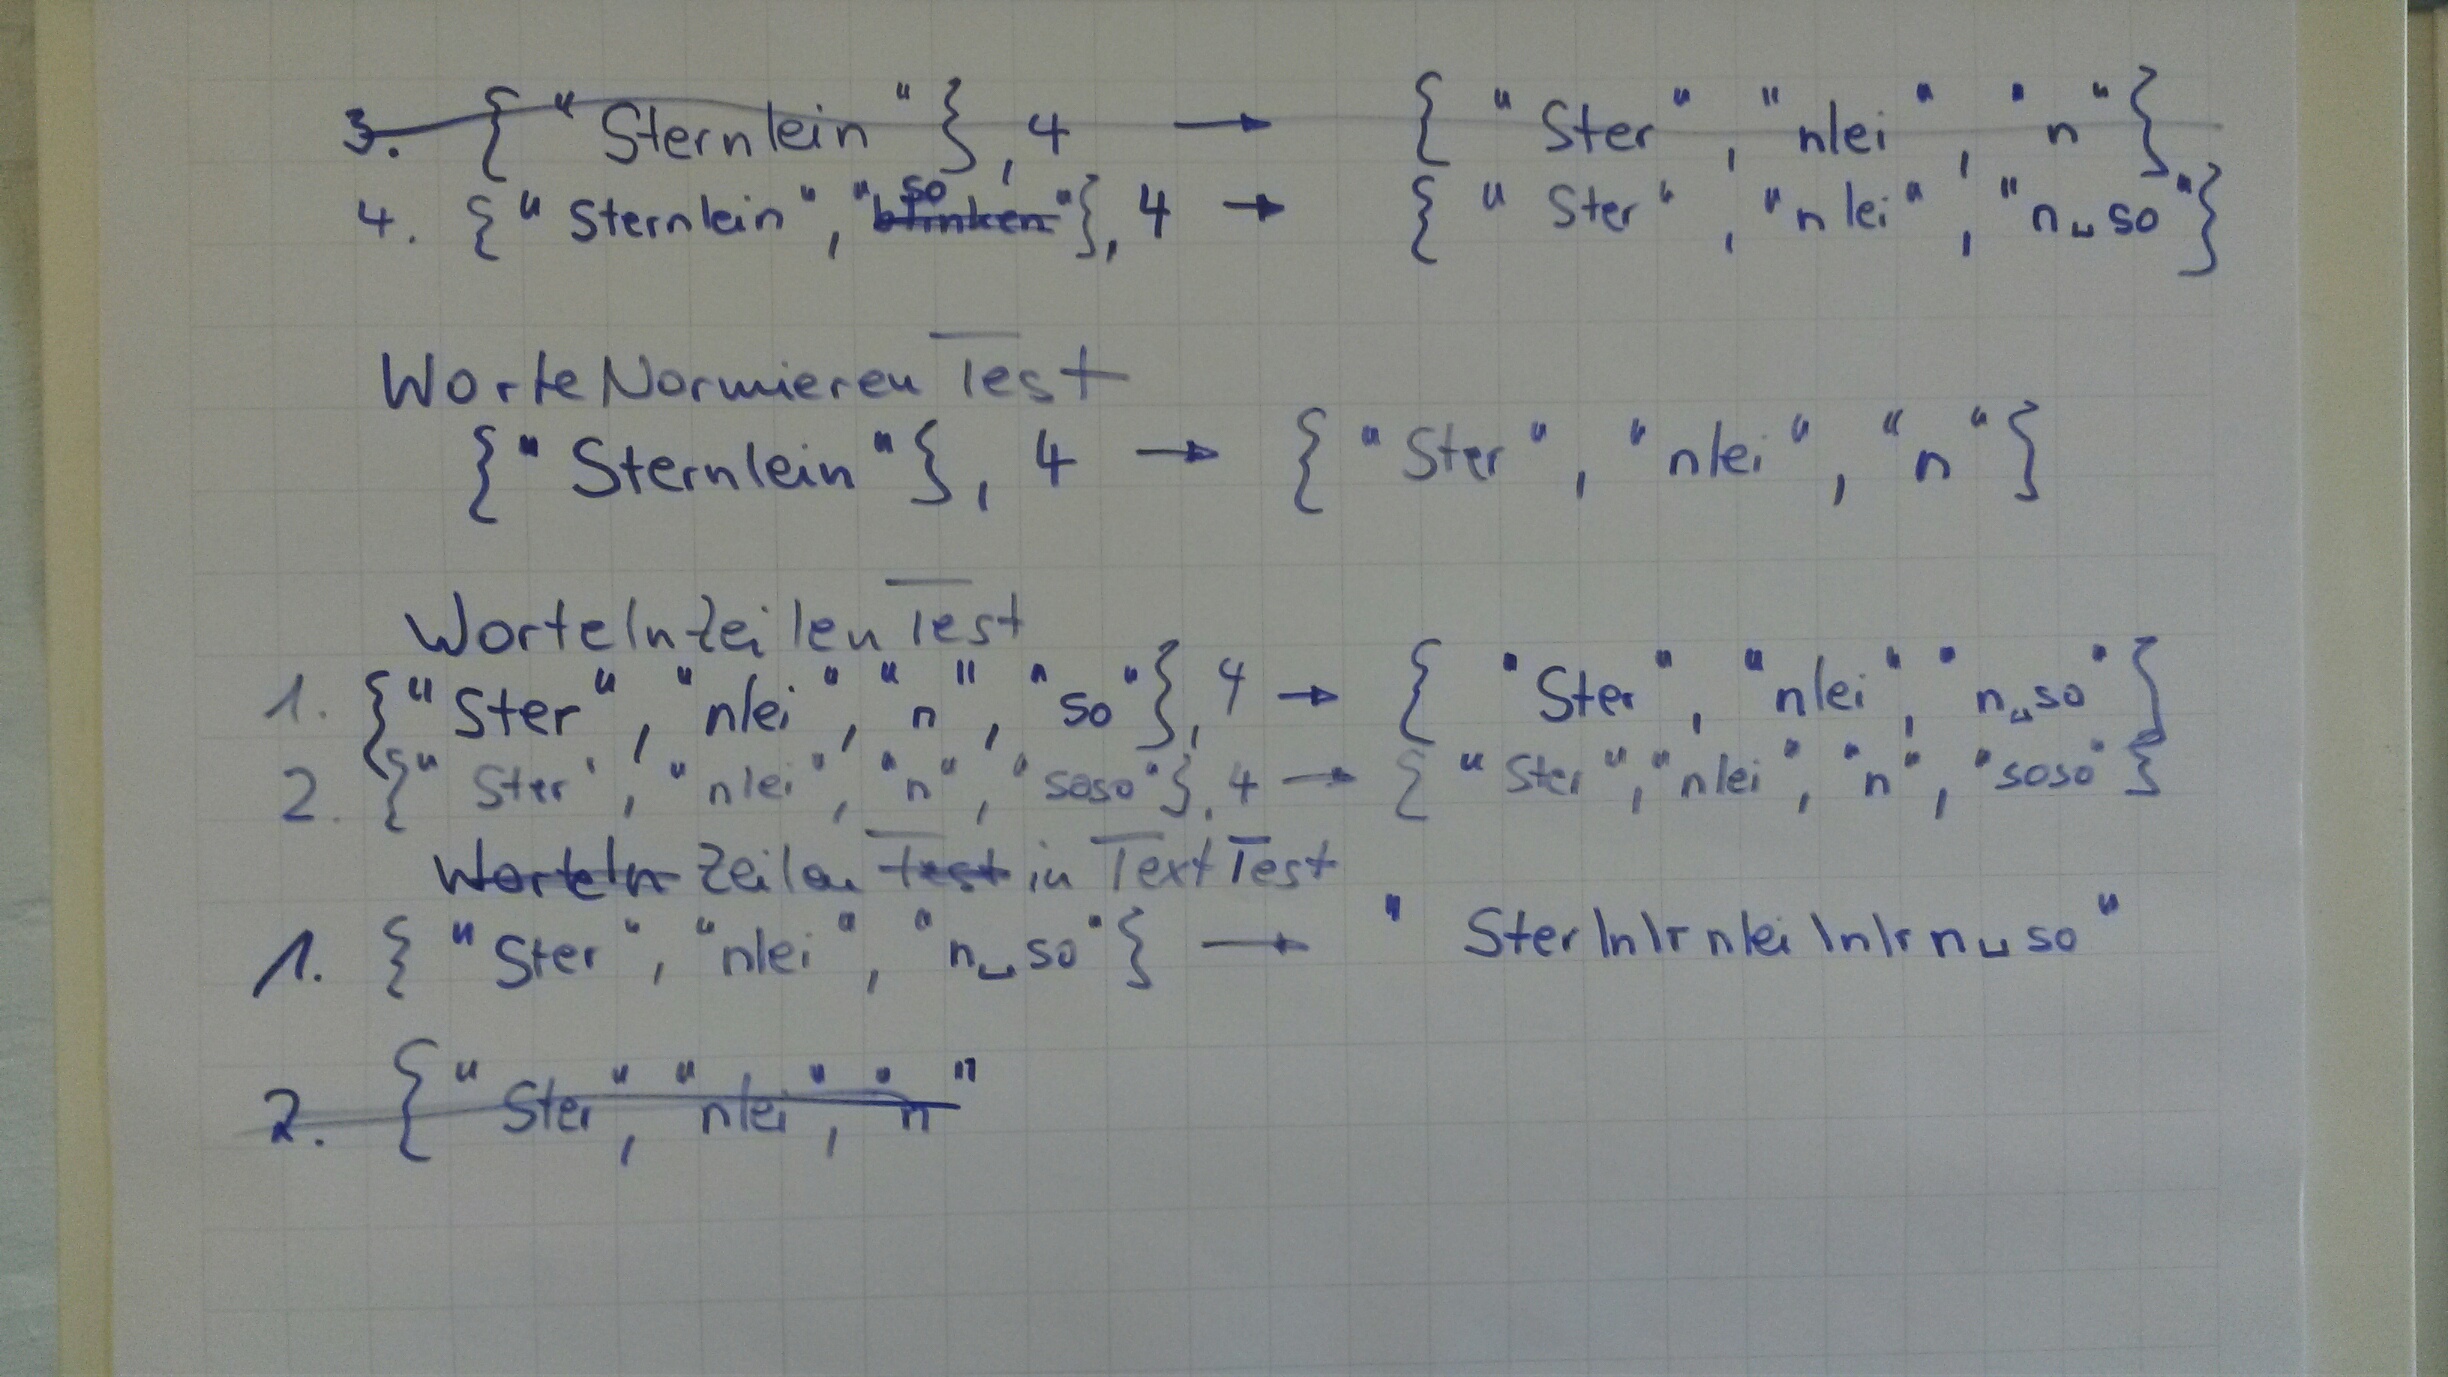 3. {"Sternlein"}, 4 → {"Ster", "nlei", "n"}
4. {"Sternlein", "blinken so"}, 4 → {"Ster", "nlei", "n␣so"}
WorteNormierenTest
{"Sternlein"}, 4 → {"Ster", "nlei", "n"}
WorteInZeilenTest
1. {"Ster", "nlei", "n", "so"}, 4 → {"Ster", "nlei", "n␣so"}
2. {"Ster", "nlei", "n", "soso"}, 4 → {"Ster", "nlei", "n", "soso"}
WorteIn Zeilen Test in TextTest
1. {"Ster", "nlei", "n␣so"} → "Ster\n\rnlei\n\rn␣so"
2. {"Ster", "nlei", "n"